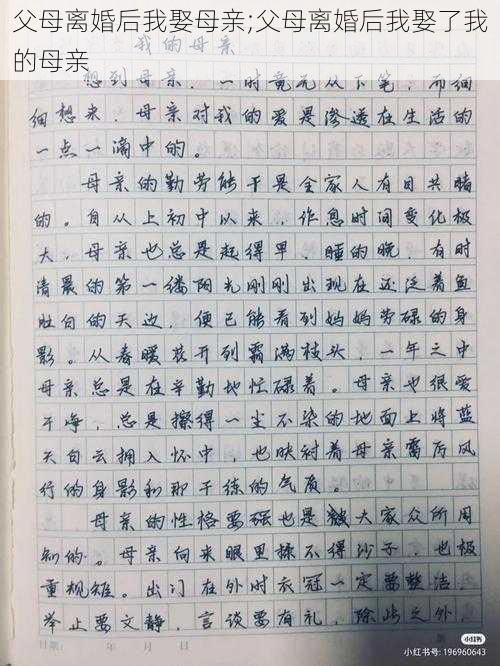 父母离婚后我娶母亲;父母离婚后我娶了我
的母亲
我的母亲
想到母亲，一时竟无从下笔，而细
细想来，母亲对我的爱是渗透在生活的
一点一滴中的。
母亲的勤劳能干是全家人有目共睹
的。自从上初中以来，作息时间变化极
大，母亲也总是起得早，睡的晚，有时
清晨的第一缕阳光刚刚出现在还泛着鱼
肚白的天边，便已能看到妈妈劳碌的身
影。从春暖花开到霜满枝头，一年之中
母亲总是在辛勤地忙碌着。母亲也很爱
干净，总是擦得一尘不染的地面上将蓝
天白云拥入怀中，也映衬着母亲雷厉风
行的身影和那干练的气质。
母亲的性格要强也是被大家众所周
知的。母亲向来眼里揉不得沙子，也极
重规矩。出门在外时衣冠一定要整洁，
举止要文静，言谈要有礼，除此之外，
日期： 年 月 日
小红书
小红书号: 196960643